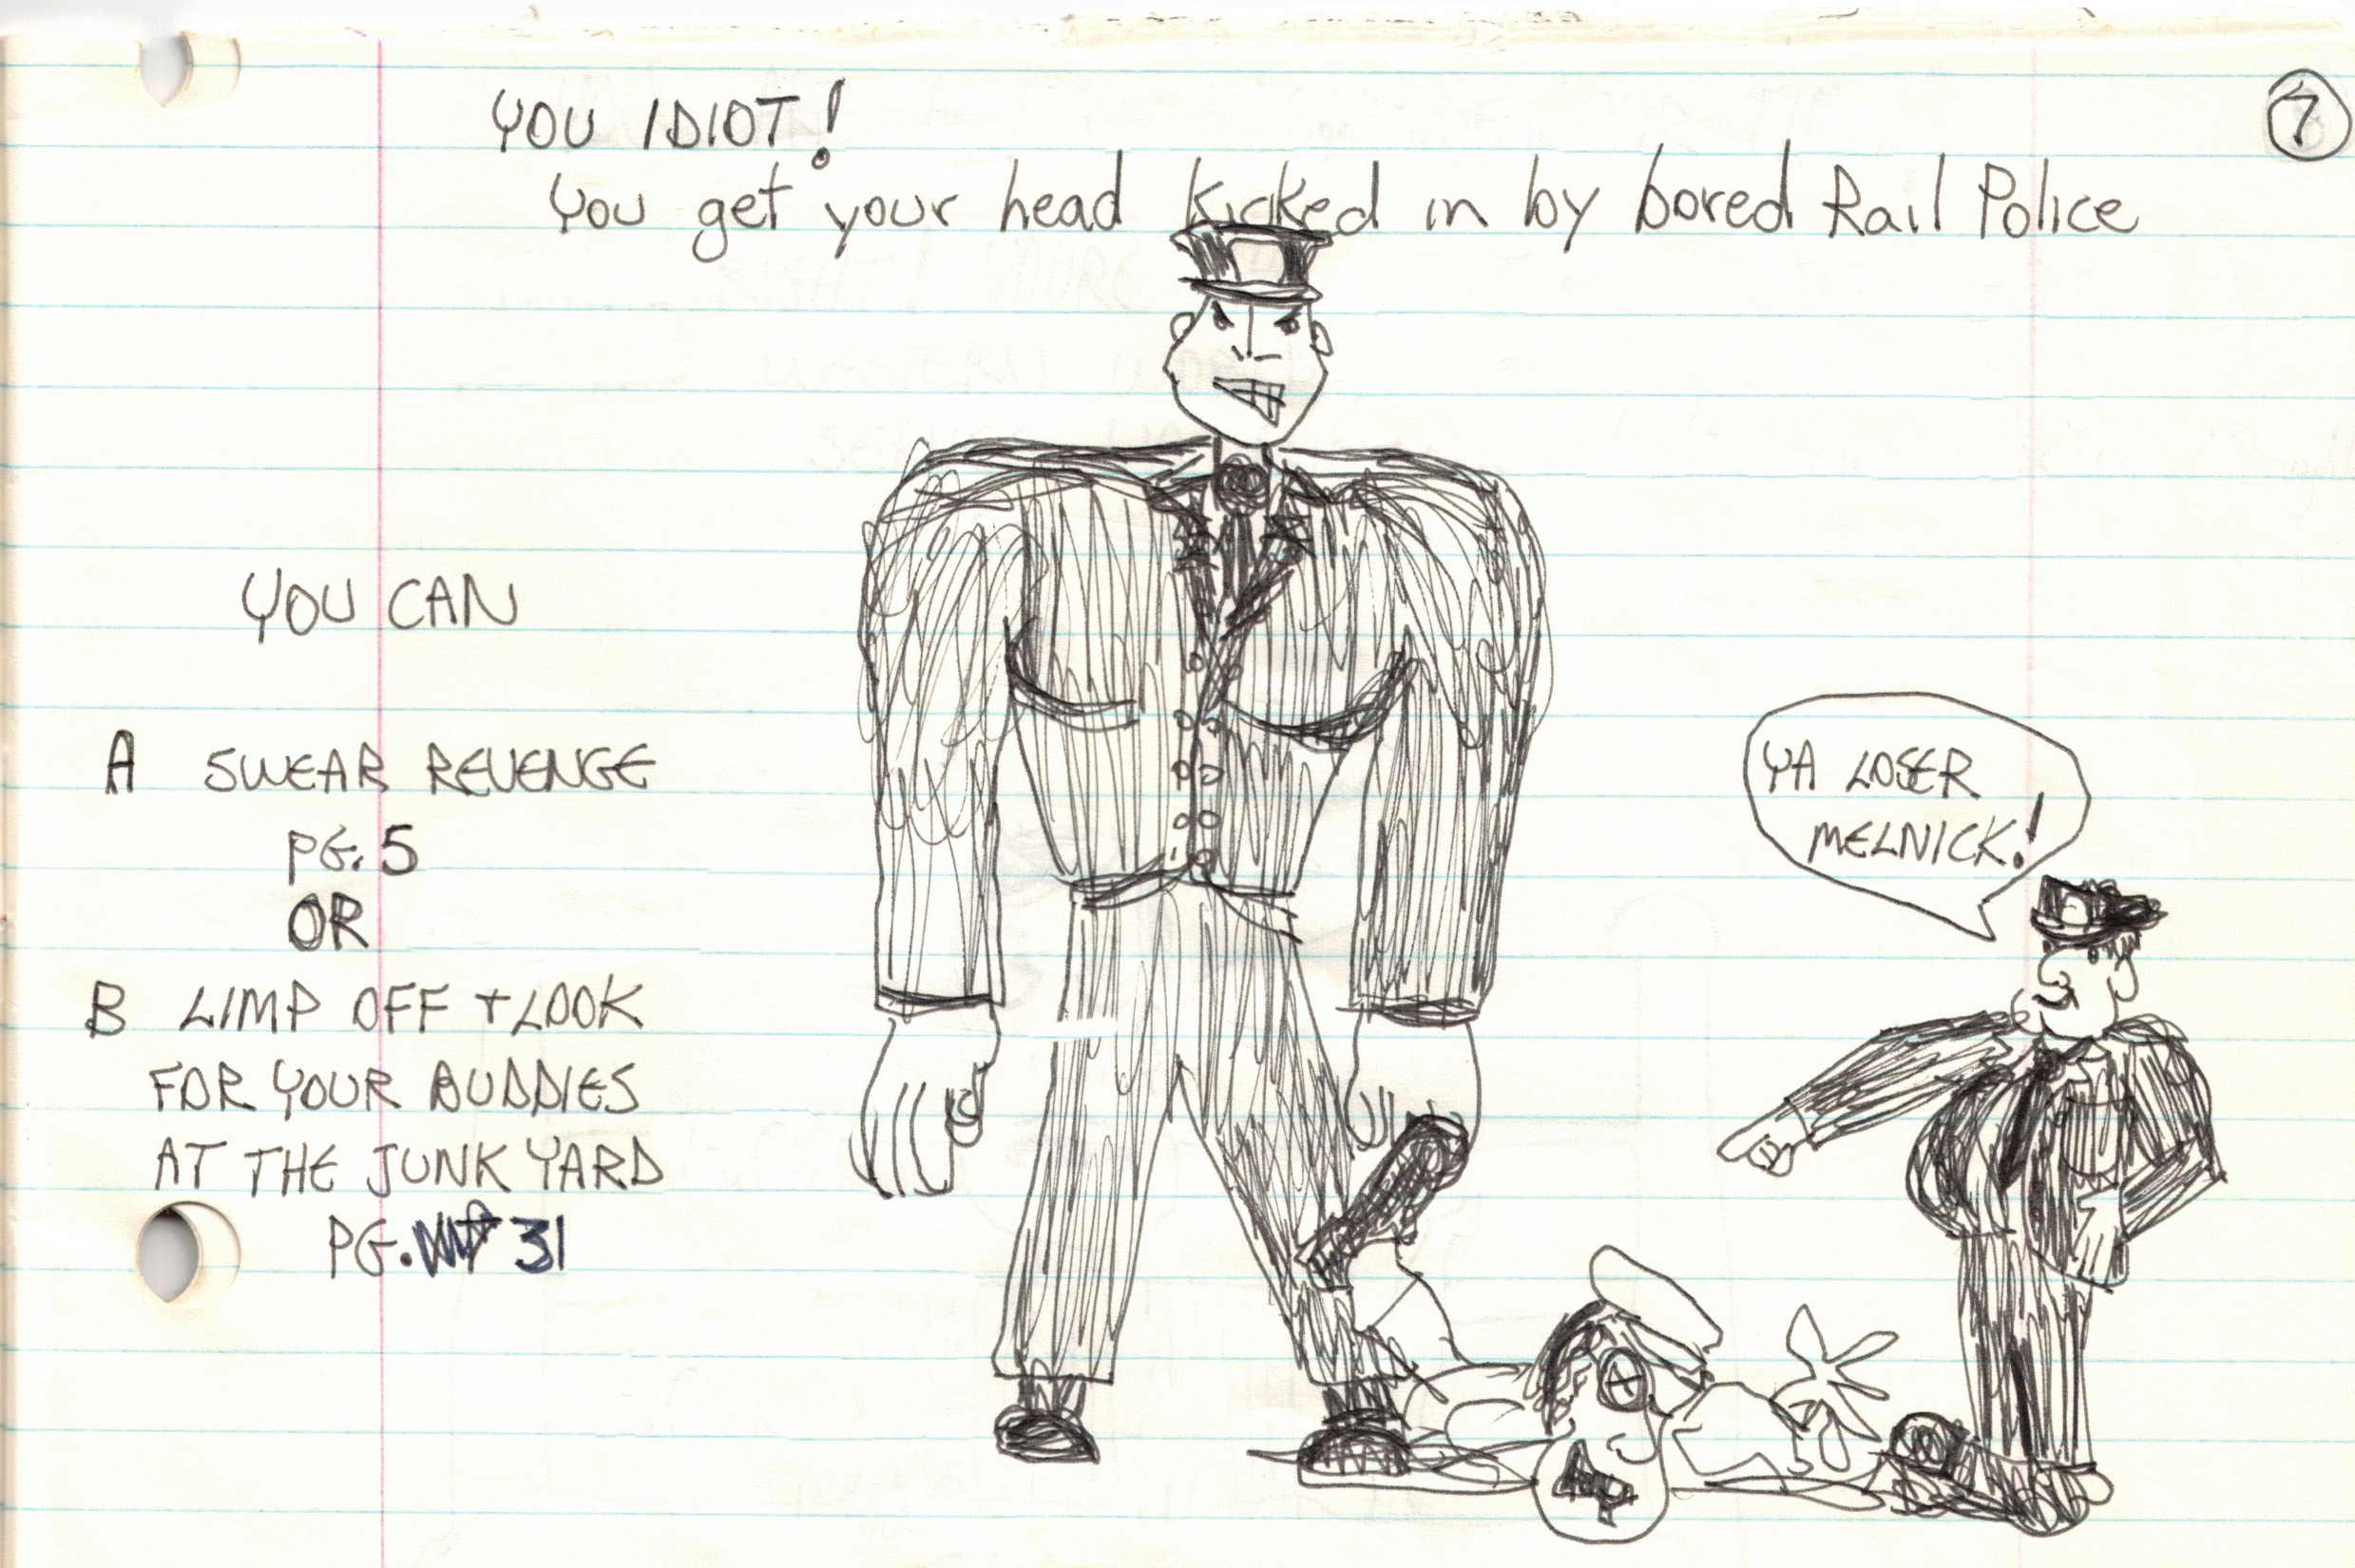 7
YOU IDIOT!
You get your head kicked in by bored Rail Police
YOU CAN
A SWEAR REVENGE
PG. 5
OR
B LIMP OFF + LOOK
FOR YOUR BUDDIES
AT THE JUNK YARD
PG. 31
YA LOSER
MELNICK!